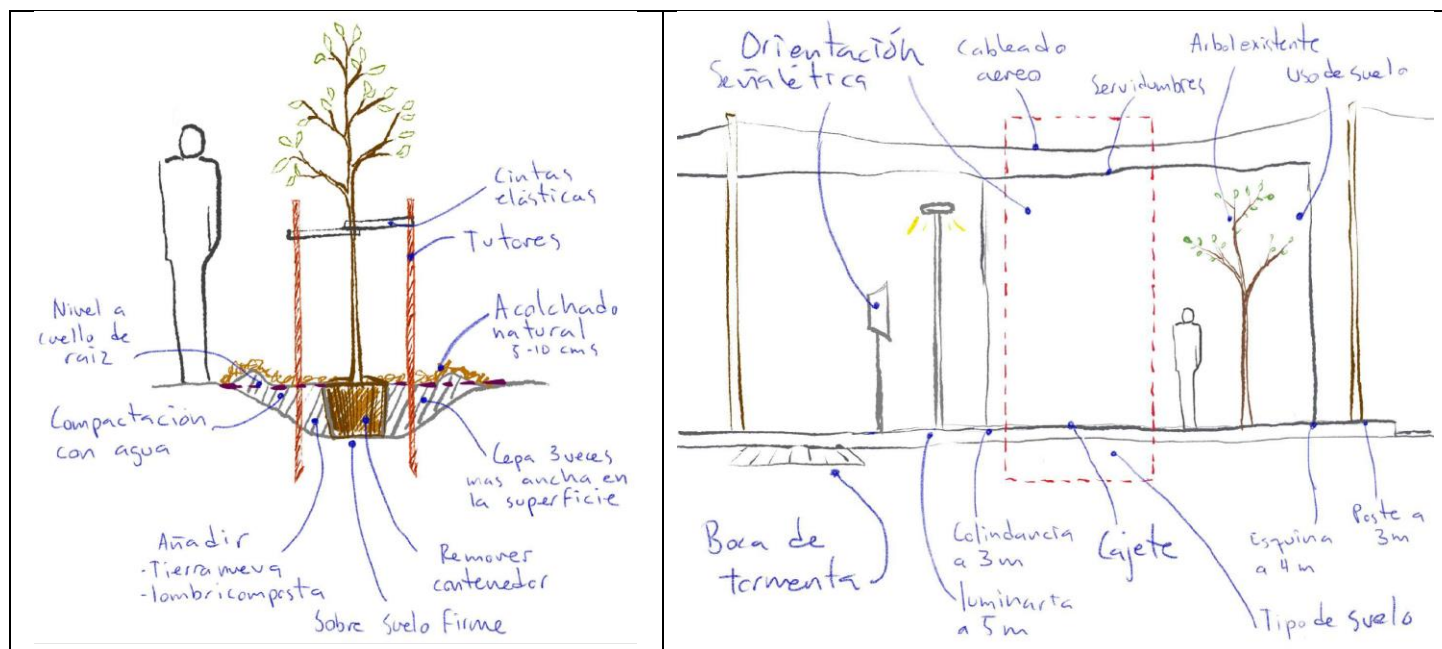 Cintas
elásticas
Tutores
Nivel a
cuello de
raiz
Acolchado
natural
5-10 cms
Compactación
con agua
Cepa 3 veces
mas ancha en
la superficie
Añadir
-Tierra nueva
-lombricomposta
Remover
contenedor
Sobre suelo firme
Orientación
Señalética
Cableado
aereo
Servidumbres
Arbol existente
Uso de suelo
Boca de
tormenta
Colindancia
a 3m
luminaria
a 5m
Cajete
Esquina
a 4m
Poste a
3m
Tipo de suelo